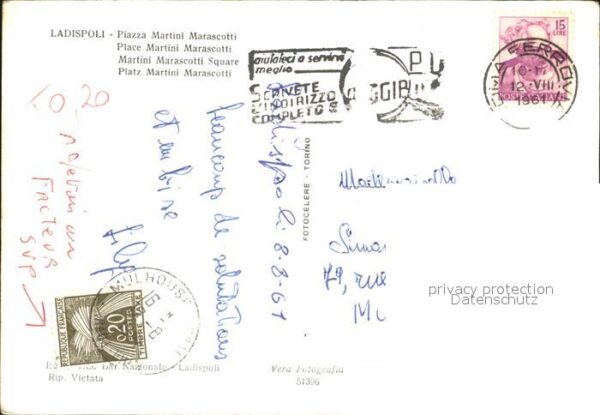 LADISPOLI - Piazza Martini Marascotti
Place Martini Marascotti
Martini Marascotti Square
Platz Martini Marascotti
aiutateci a servirvi
meglio
SCRIVETE
INDIRIZZO
COMPLETO
15
LIRE
ROMA FERROVIA
12·VIII
1961
0,20
FACTEUR
SVP
Ladispoli 8.8.61
beaucoup de salutations
et un bise
FOTOCELERE - TORINO
Mademoiselle
Simon
79, rue
Mu
privacy protection
Datenschutz
MULHOUSE
REPUBLIQUE FRANÇAISE
0,20
POSTES
TIMBRE TAXE
Bar Nazionale - Ladispoli
Rip. Vietata
Vera Fotografia
51396